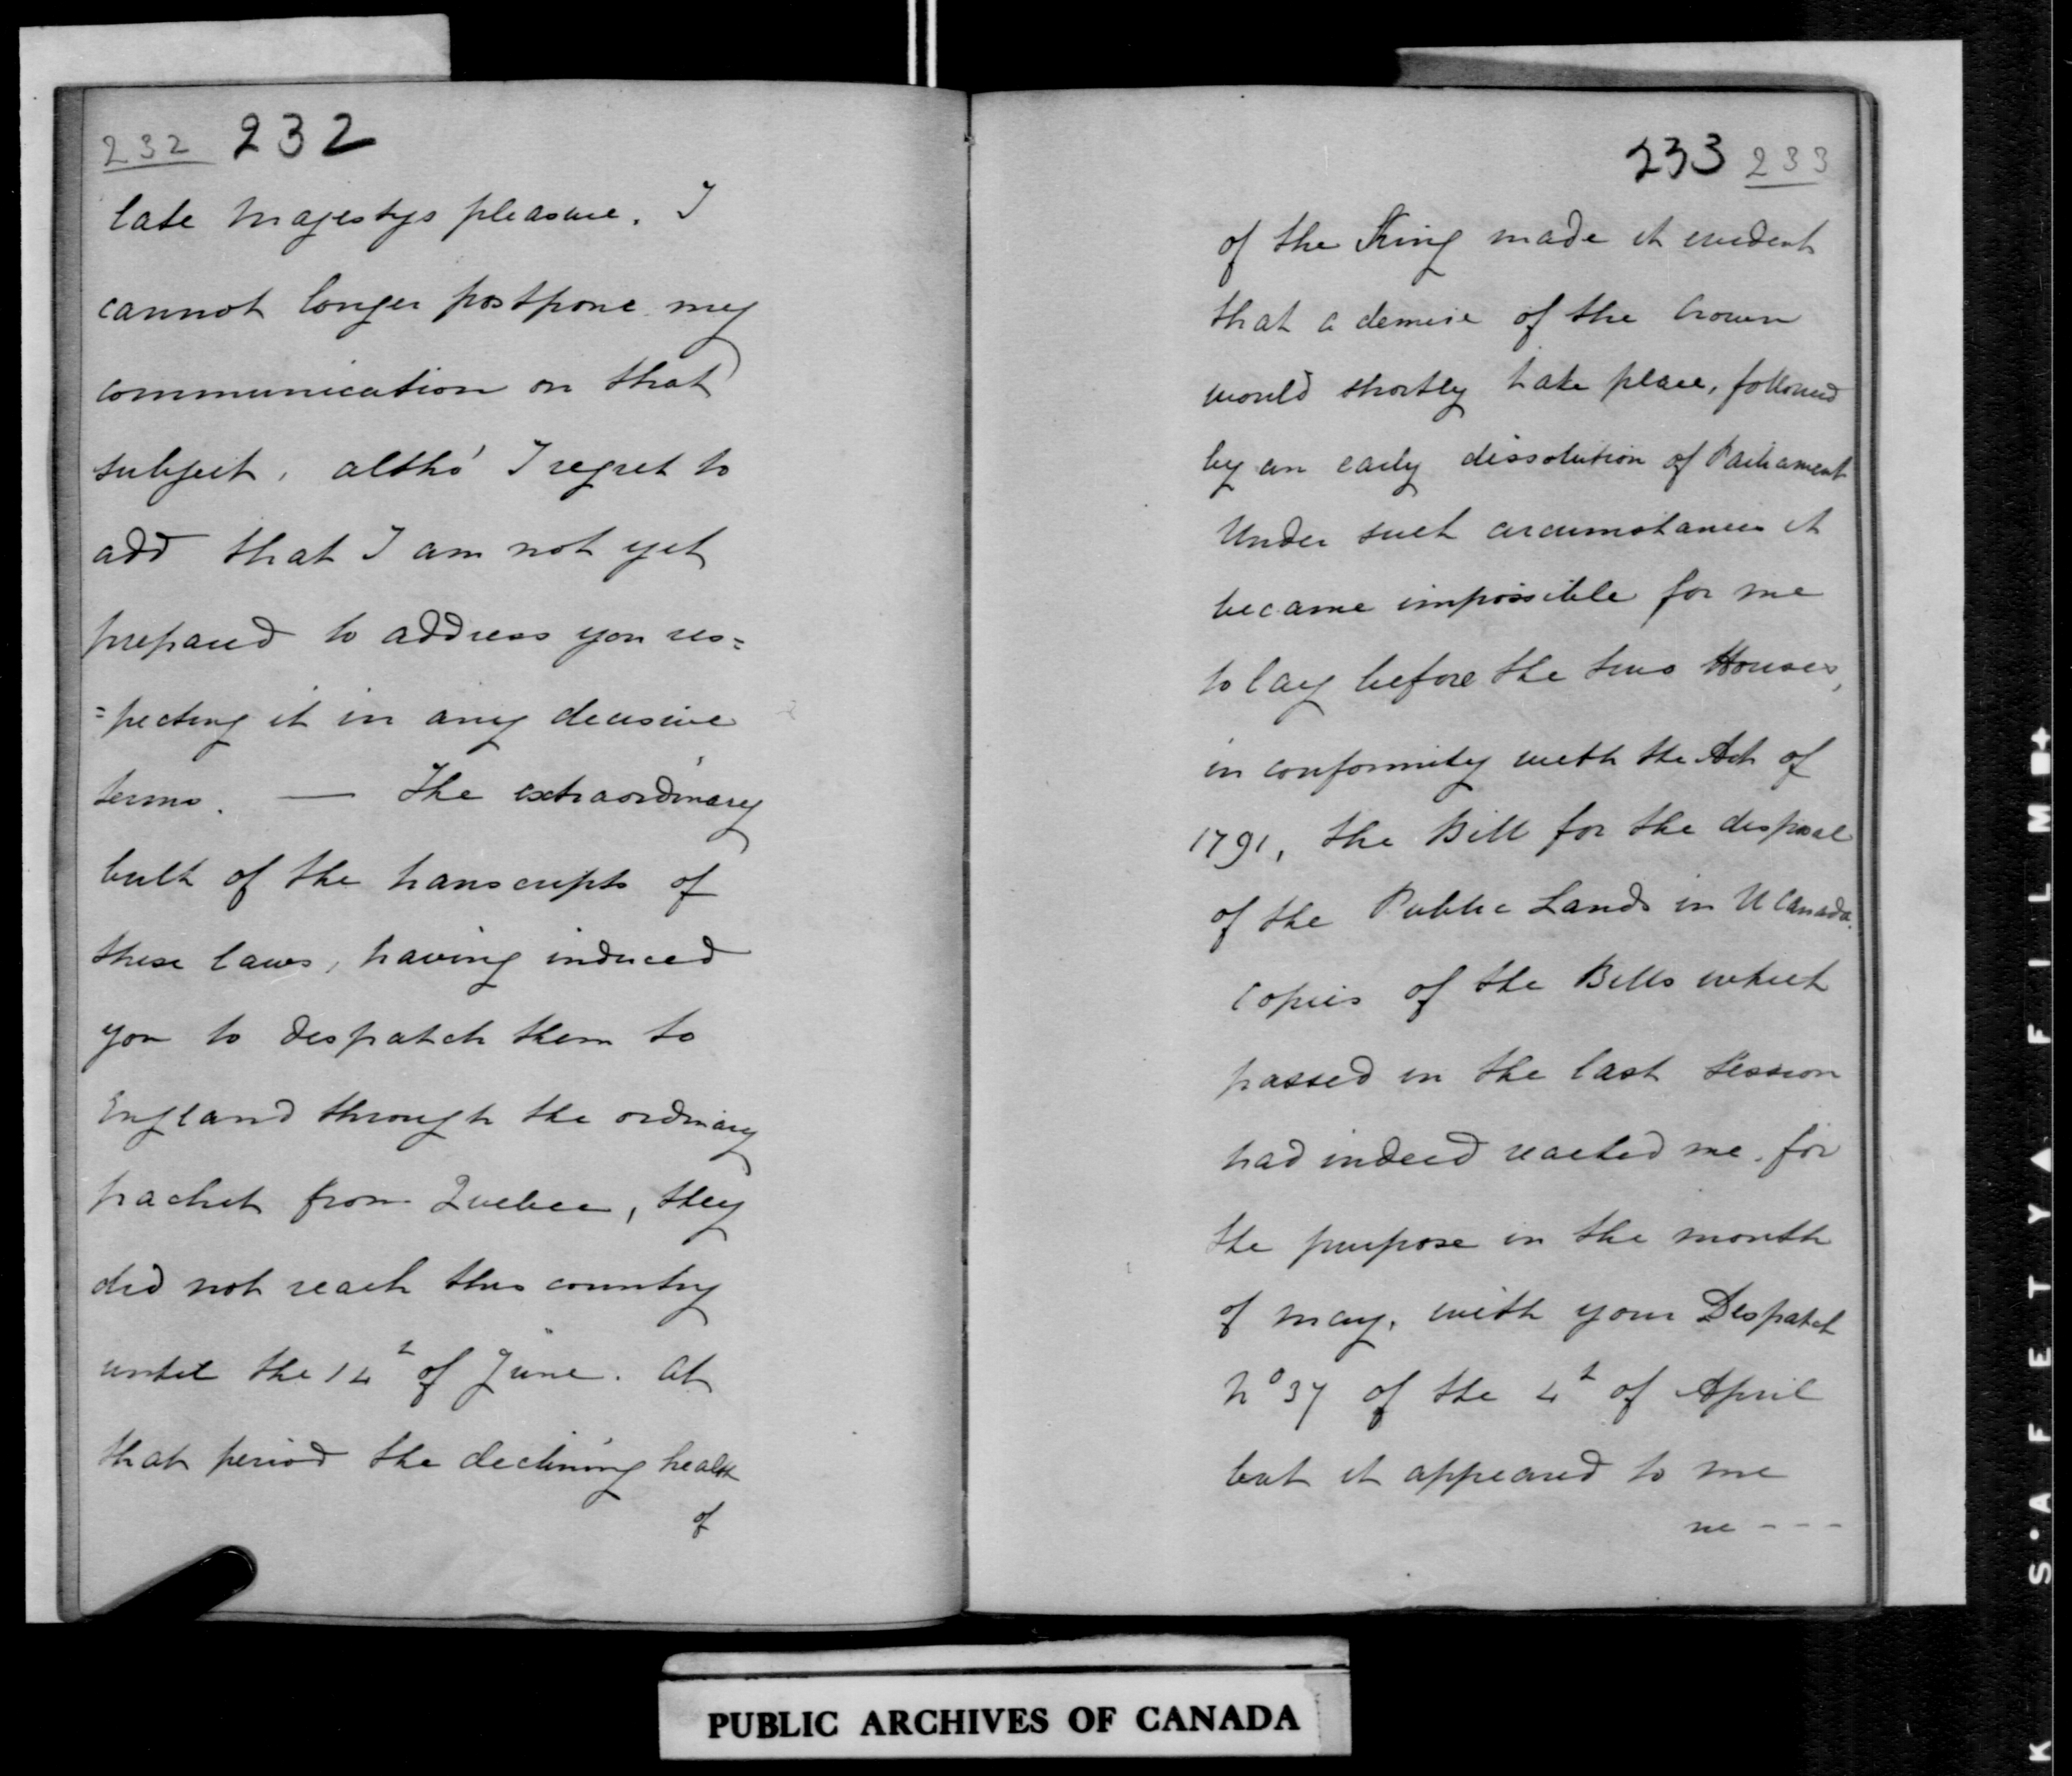 232 232
late Majestys pleasure. I
cannot longer postpone my
communication on that
subject, altho' I regret to
add that I am not yet
prepared to address you res=
=pecting it in any decisive
terms. — The extraordinary
bulk of the transcripts of
these laws, having induced
you to despatch them to
England through the ordinary
packet from Quebec, they
did not reach this country
until the 14th of June. At
that period the declining health
of
233 233
of the King made it evident
that a demise of the Crown
would shortly take place, followed
by an early dissolution of Parliament
Under such circumstances it
became impossible for me
to lay before the two Houses,
in conformity with the Act of
1791, the Bill for the disposal
of the Public Lands in U Canada.
Copies of the Bills which
passed in the last Session
had indeed reached me, for
the purpose in the month
of May, with your Despatch
No 37 of the 4th of April
but it appeared to me
ne - - -
PUBLIC ARCHIVES OF CANADA
K S'A F E T Y ▲ F I L M